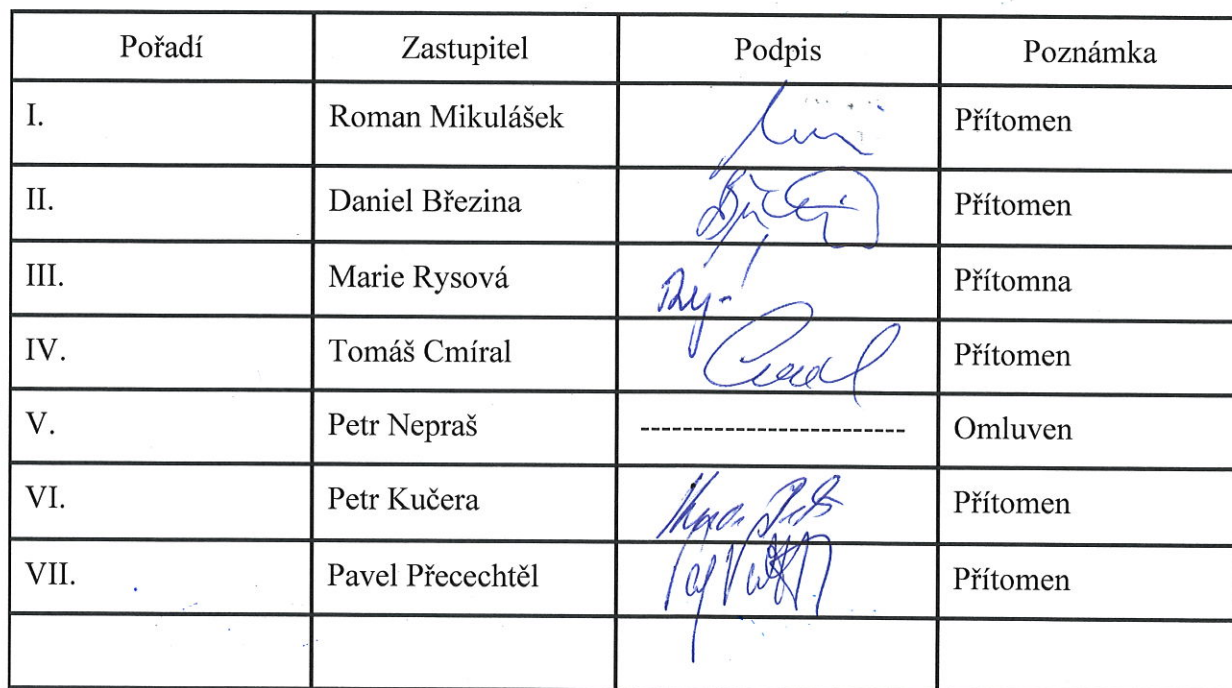 Pořadí Zastupitel Podpis Poznámka
I. Roman Mikulášek Přítomen
II. Daniel Březina Přítomen
III. Marie Rysová Přítomna
IV. Tomáš Cmíral Přítomen
V. Petr Nepraš ------------------------- Omluven
VI. Petr Kučera Přítomen
VII. Pavel Přecechtěl Přítomen